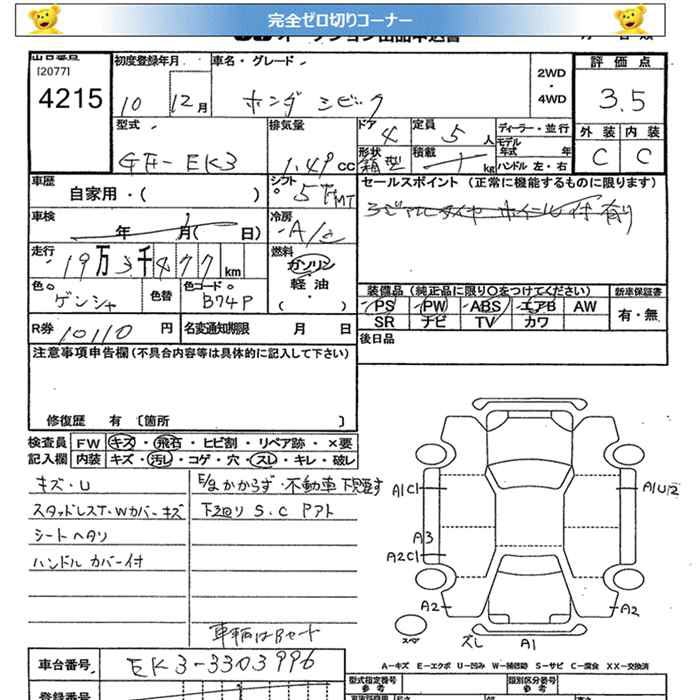 完全ゼロ切りコーナー
[2077]
4215
初度登録年月
10 12月
車名・グレード
ホンダ シビック
2WD
・
4WD
評価点
3.5
外装 内装
C C
型式
GF-EK3
排気量
1.49 cc
ドア 4
定員 5 人
形状 箱型
積載 kg
ディーラー・並行
モデル年式 年
ハンドル 左・右
車歴
自家用・( )
シフト
5 F MT
セールスポイント (正常に機能するものに限ります)
車検
年 月( 日)
冷房
A/C
走行
19万3千477km
燃料
ガソリン
軽油
・
( )
色
ゲンシャ
色替
色コード
B74P
装備品 (純正品に限り○をつけてください)
PS PW ABS エアB AW
SR ナビ TV カワ
新車保証書
有・無
R券 10110 円
名変通知期限 月 日
後日品
注意事項申告欄 (不具合内容等は具体的に記入して下さい)
修復歴 有 [箇所 ]
検査員 FW キズ・飛石・ヒビ割・リペア跡・×要
記入欄 内装 キズ・汚レ・コゲ・穴・スレ・キレ・破レ
キズ・U
スタッドレスT・Wカバーキズ
シートヘタリ
ハンドルカバー付
E/gかからず・不動車
下廻り S.C アト
車輌はBセット
A1C1
A1U2
A3
A2C1
A2
A2
スペア
スレ A1
A-キズ E-エクボ U-凹み W-補修跡 S-サビ C-腐食 XX-交換済
車台番号
EK3-3303996
型式指定番号
参考
類別区分番号
参考
登録番号